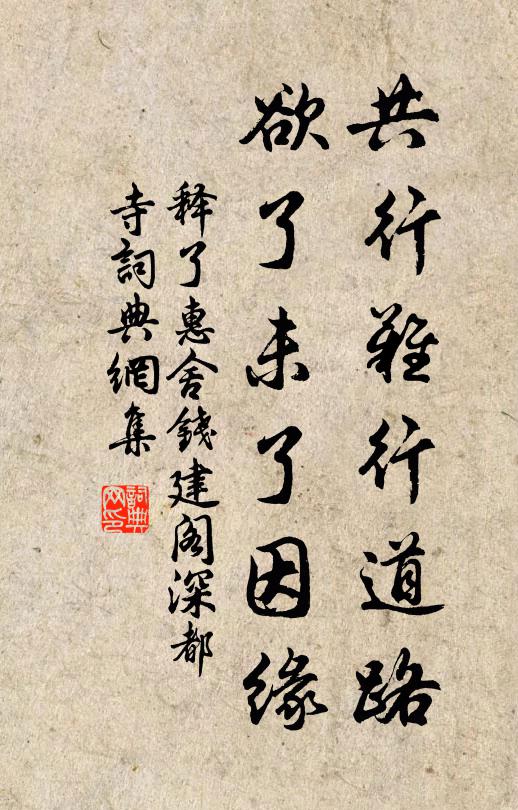 共行難行道路
欲了未了因緣
释了惠舍錢建阁深都
寺詞典網集
詞典網印